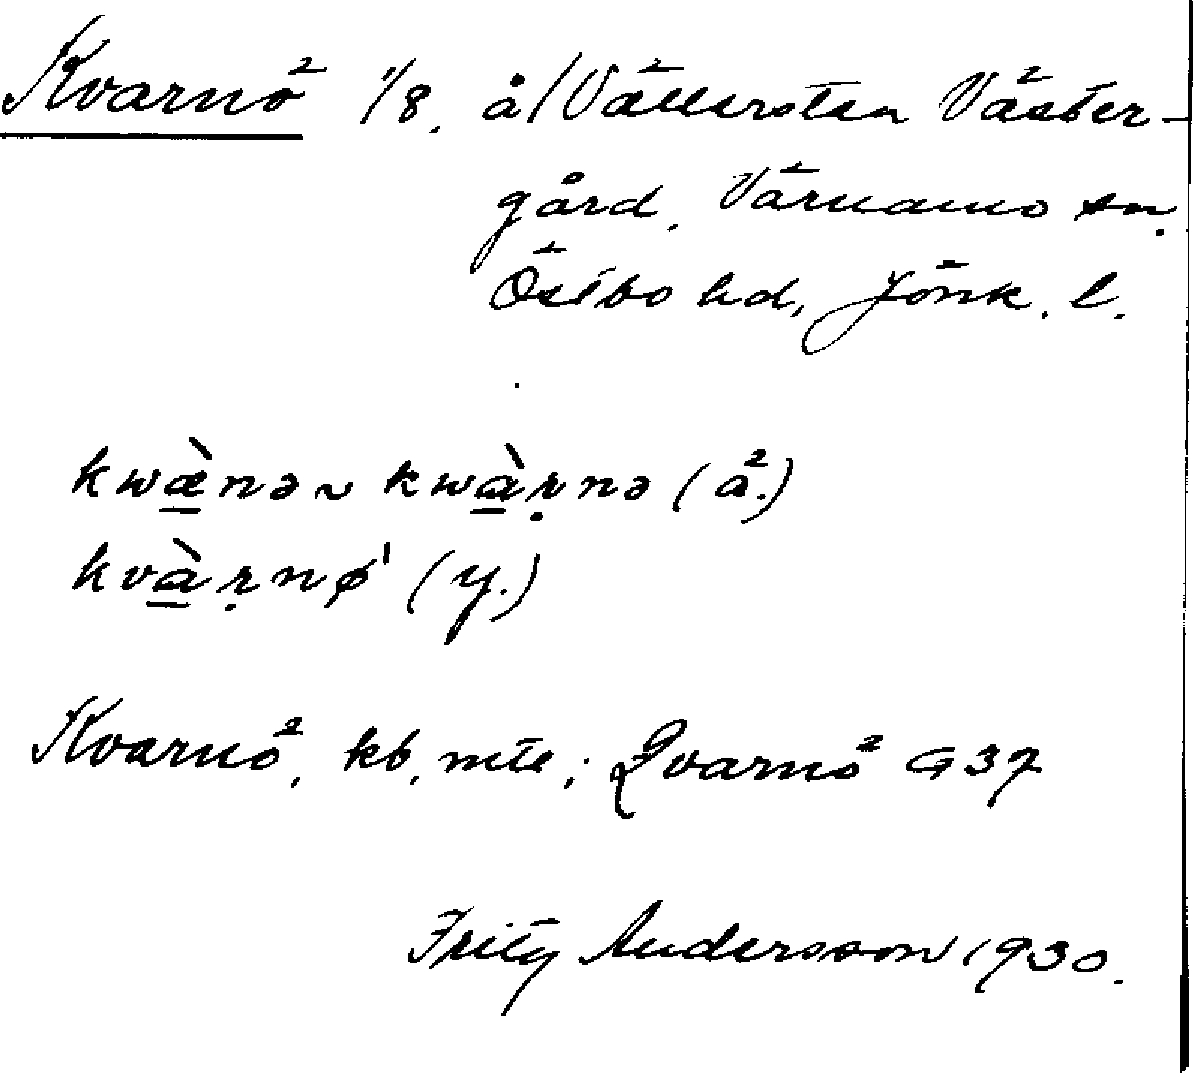 Kvarnö 1/8. å/Vällersten Väster-
gård, Värnamo sn.
Östbo hd, Jönk. l.
kwæ̀nə ~ kwàṛnə (ä.)
kvàṛnø' (y.)
Kvarnö, kb, mtl; Qvarnö G 37
Fritz Andersson 1930.